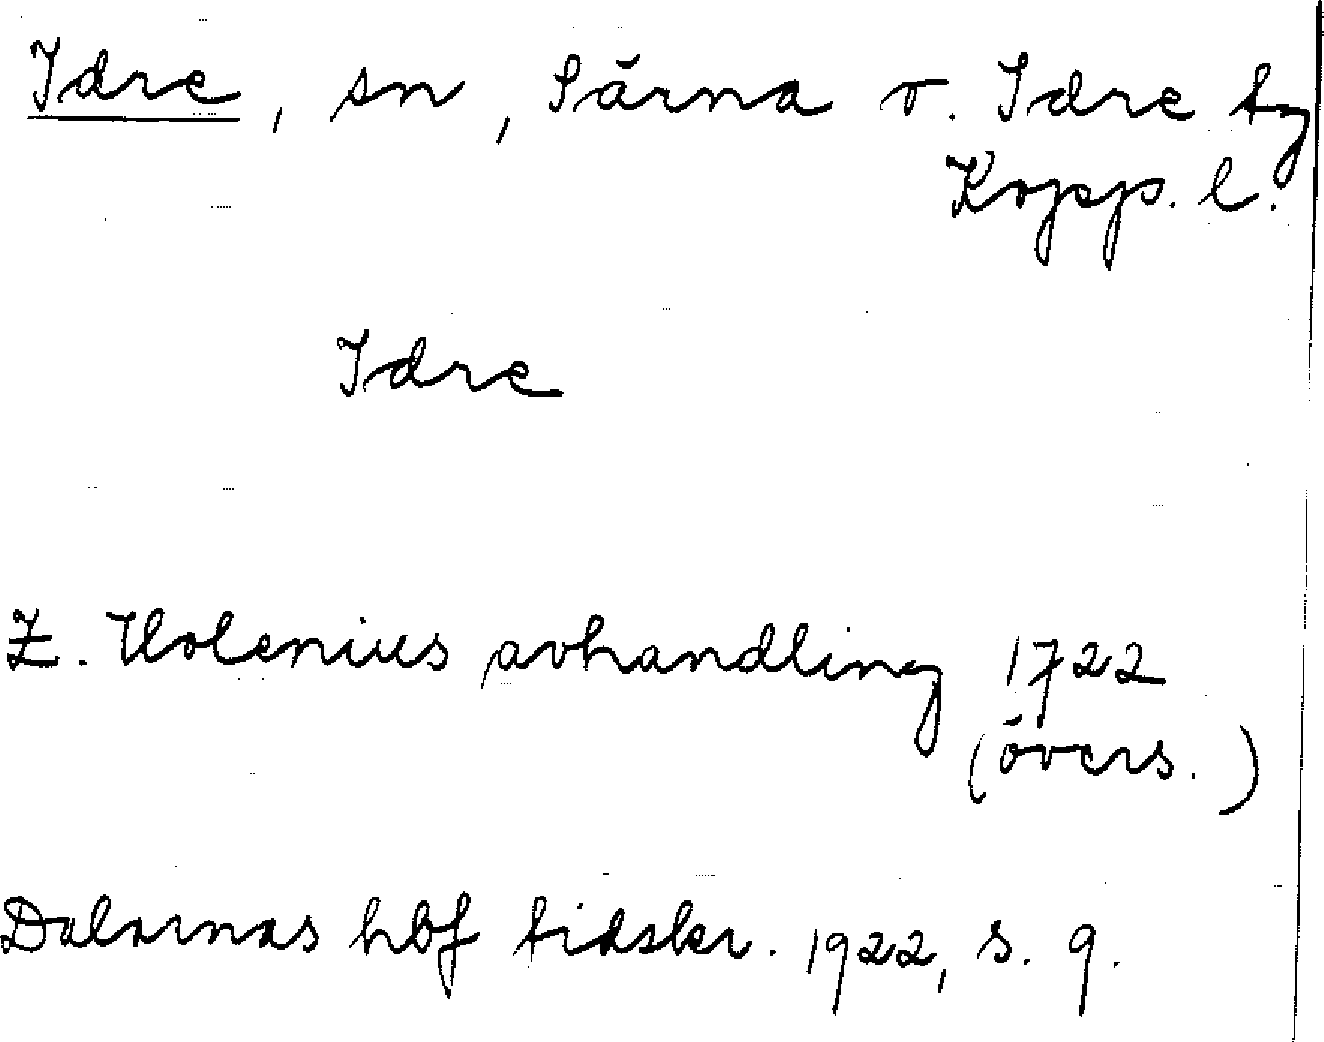 Idre, sn, Särna o. Idre tg
Kopp. l.
Idre
Z. Holenius avhandling 1722
(övers.)
Dalarnas hbf tidskr. 1922, s. 9.